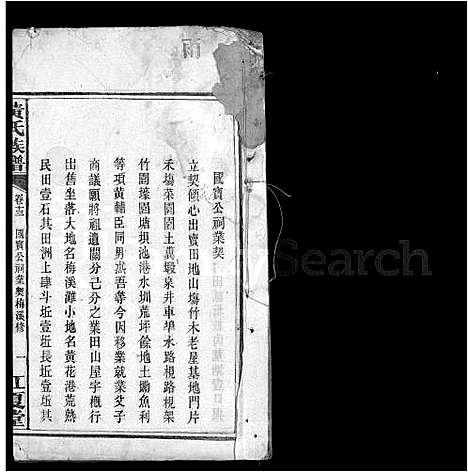 雨
國寶公祠業契
立契傾心出賣田地山塲竹木老屋基地門片
禾塲菜園園土糞塅泉井車埠水路梘路梘架
竹園壕圍塘垻池港水圳荒坪餘地土墈魚利
等項黄輔臣同男 吾等今因移業就業父子
商議願將祖遺關分己分之業田山屋宇概行
出售坐落大地名梅溪灘小地名黄花港荒熟
民田壹石其田洲上肆斗坵壹坵長坵壹坵其
黃氏族譜
卷十三 國寶公祠業契梅溪修
一
江夏堂